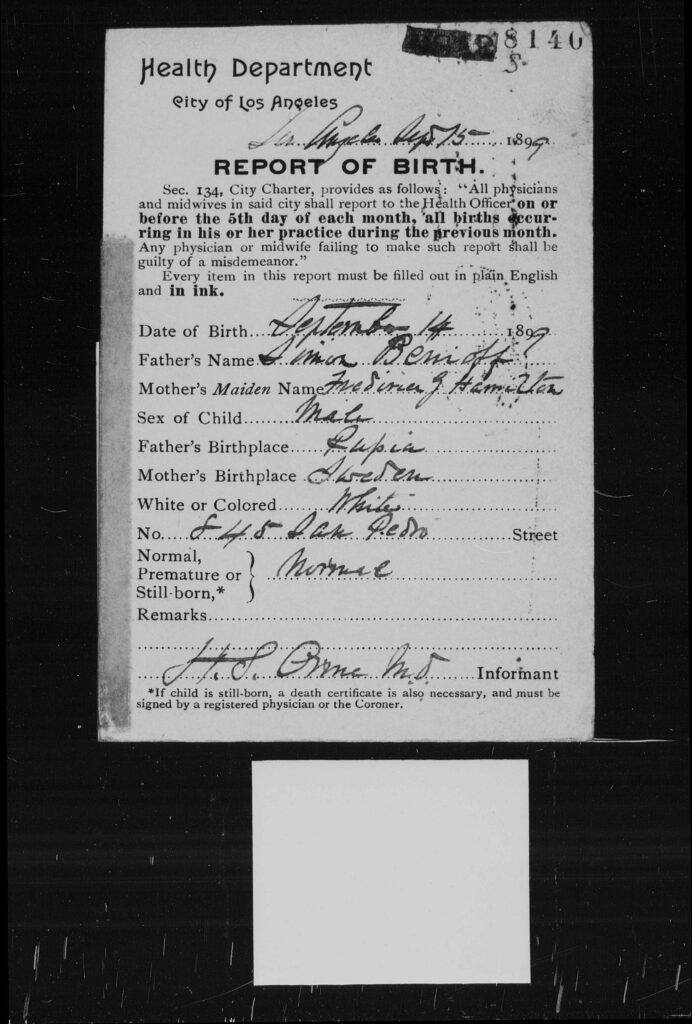 8140
S.
Health Department
City of Los Angeles
Los Angeles Sept 15 1899
REPORT OF BIRTH.
Sec. 134, City Charter, provides as follows: "All physicians
and midwives in said city shall report to the Health Officer on or
before the 5th day of each month, all births occur-
ring in his or her practice during the previous month.
Any physician or midwife failing to make such report shall be
guilty of a misdemeanor."
Every item in this report must be filled out in plain English
and in ink.
Date of Birth September 14 1899
Father's Name Simon Benioff
Mother's Maiden Name Frederica J Hamilton
Sex of Child Male
Father's Birthplace Rusia
Mother's Birthplace Sweden
White or Colored White
No. 845 San Pedro Street
Normal,
Premature or
Still-born,* } Normal
Remarks
H. S. Orme M.D. Informant
*If child is still-born, a death certificate is also necessary, and must be
signed by a registered physician or the Coroner.